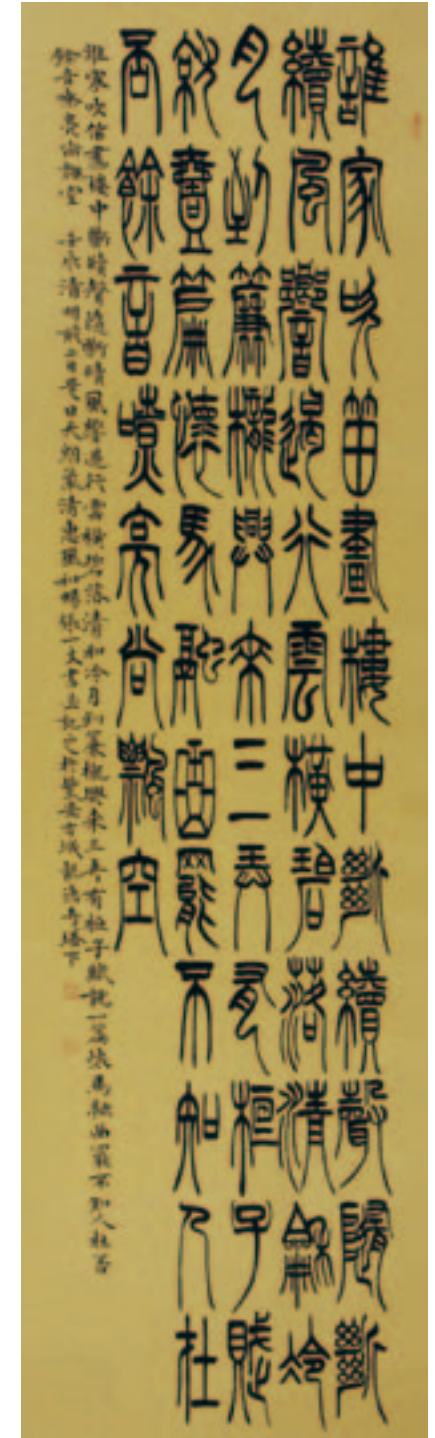 誰家吹笛畫樓中斷續聲隨斷
續風響遏行雲橫碧落清龢冷
月到簾櫳興來三弄有桓子賦
就壹篇懷馬融曲罷不知人在
否餘音嘹亮尚飄空
誰家吹笛畫樓中斷續聲隨斷續風響遏行雲橫碧落清和冷月到簾櫳興來三弄有桓子賦就一篇懷馬融曲罷不知人在否
餘音嘹亮尚飄空 清明前二日是日天朗氣清惠風和暢張一文書並記之於古城塔下